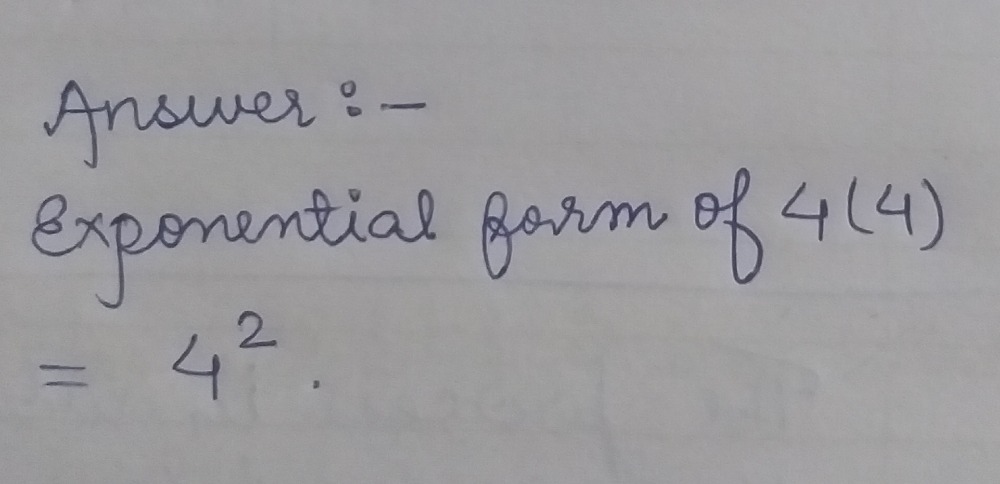 Answer :-
Exponential form of 4(4)
= 4².